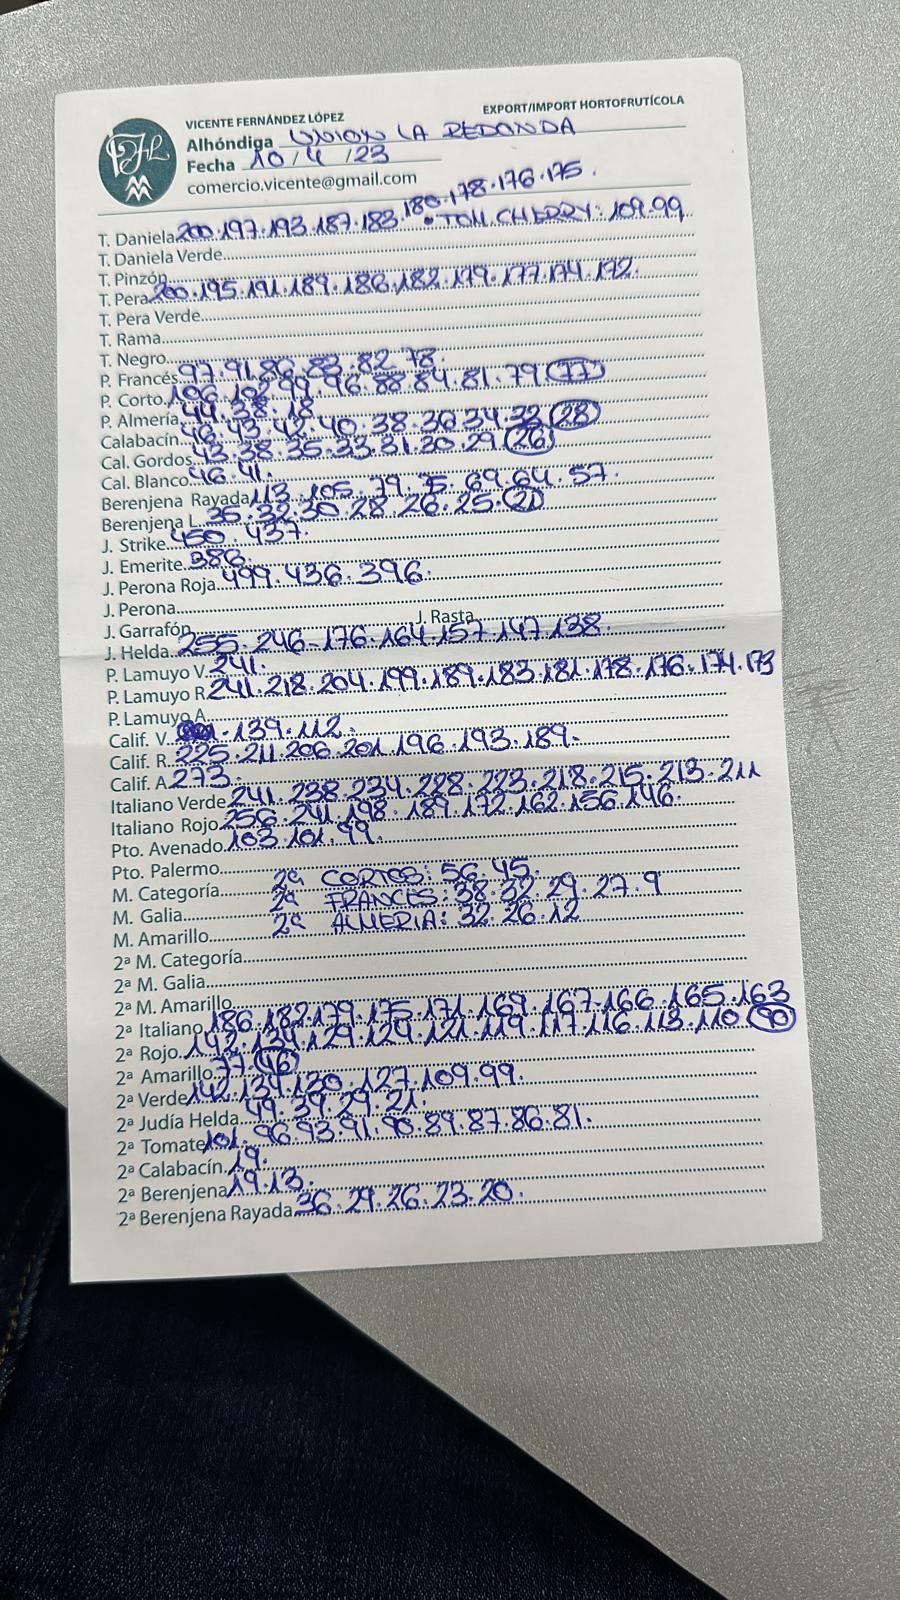 VICENTE FERNÁNDEZ LÓPEZ EXPORT/IMPORT HORTOFRUTÍCOLA
Alhóndiga UNION LA REDONDA
Fecha 10/4/23
comercio.vicente@gmail.com
T. Daniela 200.197.193.187.183.180.178.176.175.
T. Daniela Verde • TOM. CHERRY: 109.99
T. Pinzón
T. Pera 200.195.191.189.186.182.179.177.174.172.
T. Pera Verde
T. Rama
T. Negro
P. Francés 97.91.86.83.82.78.
P. Corto 106.102.99.96.88.84.81.79.77
P. Almería 44.38.18
Calabacín 46.43.42.40.38.36.34.32.28
Cal. Gordos 43.38.35.33.31.30.29.26
Cal. Blanco 46.41.
Berenjena Rayada 113.105.79.75.69.64.57.
Berenjena L. 35.32.30.28.26.25.21
J. Strike 450.437.
J. Emerite 386.
J. Perona Roja 499.436.396.
J. Perona
J. Garrafón J. Rasta
J. Helda 255.246.176.164.157.147.138.
P. Lamuyo V. 241.
P. Lamuyo R 241.218.204.199.189.183.181.178.176.174.173
P. Lamuyo A.
Calif. V. 139.112.
Calif. R. 225.211.206.201.196.193.189.
Calif. A 273.
Italiano Verde 241.238.234.228.223.218.215.213.211
Italiano Rojo 256.241.198.189.172.162.156.146.
Pto. Avenado 103.101.99.
Pto. Palermo
M. Categoría 2ª CORTOS: 56.45.
M. Galia 2ª FRANCES: 38.32.29.27.9
M. Amarillo 2ª ALMERIA: 32.26.12
2ª M. Categoría
2ª M. Galia
2ª M. Amarillo
2ª Italiano 186.182.179.175.171.169.167.166.165.163
2ª Rojo 142.134.129.124.121.119.117.116.113.110.90
2ª Amarillo 77.46
2ª Verde 142.134.130.127.109.99.
2ª Judía Helda 49.39.29.21.
2ª Tomate 101.96.93.91.90.89.87.86.81.
2ª Calabacín 19.
2ª Berenjena 19.13.
2ª Berenjena Rayada 36.29.26.23.20.